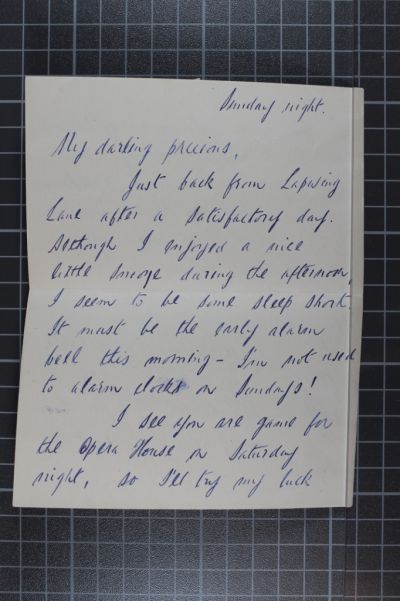 Sunday night.
My darling precious,
Just back from Lapwing
Lane after a satisfactory day.
Although I enjoyed a nice
little snooze during the afternoon,
I seem to be some sleep short.
It must be the early alarm
bell this morning - I'm not used
to alarm clocks on Sundays!
I see you are game for
the Opera House on Saturday
night, so I'll try my luck.